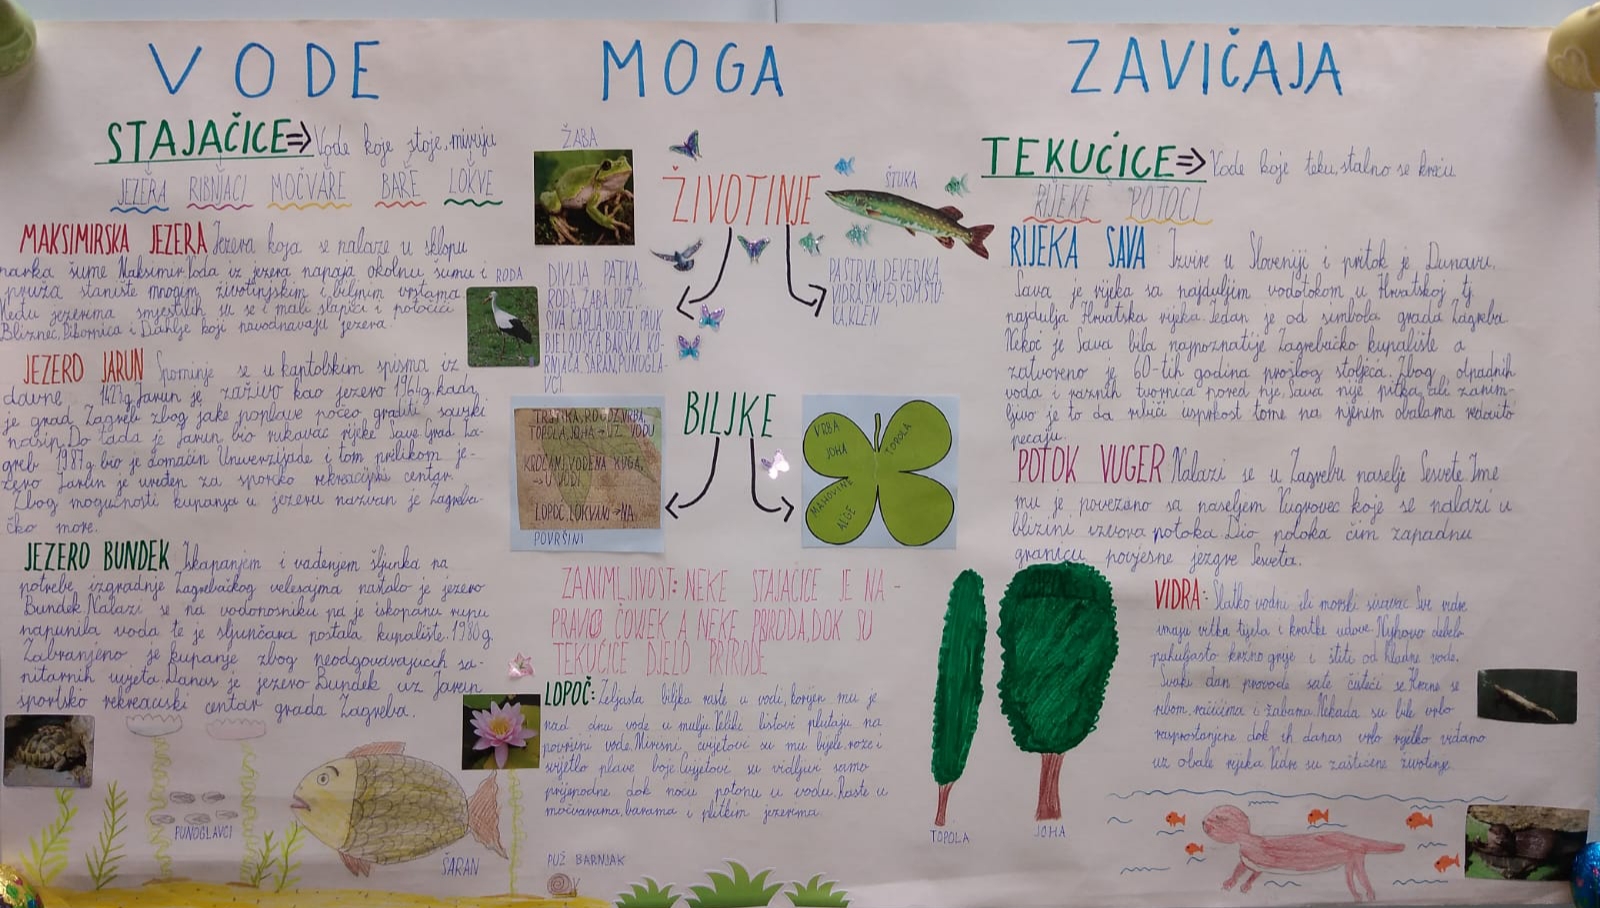 VODE MOGA ZAVIČAJA
STAJAČICE⇒ Vode koje stoje, miruju
JEZERA RIBNJACI MOČVARE BARE LOKVE
MAKSIMIRSKA JEZERA Jezera koja se nalaze u sklopu
parka šume Maksimir. Voda iz jezera napaja okolnu šumu i
pruža stanište mnogim životinjskim i biljnim vrstama.
Među jezerima smjestili su se i mali slapići i potočići
Bliznec, Pibornica i Dahlje koji navodnavaju jezera.
JEZERO JARUN Spominje se u kaptolskim spisma iz
davne 1427g. Jarun je zaživo kao jezero 1964g. kada
je grad Zagreb zbog jake poplave počeo graditi savski
nasip. Do tada je Jarun bio rukavac rijeke Save. Grad Za-
greb 1987g bio je domaćin Univerzijade i tom prilikom je-
zero Jarun je uređen za sporsko rekreacijski centar.
Zbog mogućnosti kupanja u jezeru nazvan je Zagreba-
čko more.
JEZERO BUNDEK Iskapanjem i vađenjem šljunka na
potrebe izgradnje Zagrebačkog velesajma nastalo je jezero
Bundek. Nalazi se na vodonosniku pa je iskopanu rupu
napunila voda te je sljunčara postala kupalište. 1980g.
Zabranjeno je kupanje zbog neodgovarajućih sa-
nitarnih uvjeta. Danas je jezero Bundek uz Jarun
sportsko rekreacijski centar grada Zagreba.
PUNOGLAVCI
ŠARAN
ŽABA
RODA
ŽIVOTINJE
ŠTUKA
DIVLJA PATKA,
RODA, ŽABA, PUŽ,
SIVA ČAPLJA, VODEN PAUK
BJELOUŠKA, BARSKA KO-
RNJAČA, ŠARAN, PUNOGLA-
VCI.
PASTRVA, DEVERIKA,
VIDRA, SMUĐ, SOM, ŠTU-
KA, KLEN
BILJKE
TRSTIKA, ROGOZ, VRBA,
TOPOLA, JOHA → UZ VODU
KROČANJ, VODENA KUGA,
→ U VODI
LOPOČ, LOKVANJ → NA
POVRŠINI
VRBA
JOHA
TOPOLA
MAHOVINE
ALGE
ZANIMLJIVOST: NEKE STAJAČICE JE NA-
PRAVIO ČOVJEK A NEKE PRIRODA, DOK SU
TEKUĆICE DJELO PRIRODE
LOPOČ: Zeljasta biljka raste u vodi, korijen mu je
nad dnu vode u mulju. Veliki listovi plutaju na
površini vode. Mirisni cvijetovi su mu bijele, roze i
svijetlo plave boje. Cvijetovi su vidljivi samo
prijepodne dok noću potonu u vodu. Raste u
močvarama, barama i plitkim jezerima.
PUŽ BARNJAK
TEKUĆICE⇒ Vode koje teku, stalno se kreću
RIJEKE POTOCI
RIJEKA SAVA Izvire u Sloveniji i pritok je Dunavu.
Sava je rijeka sa najduljim vodotokom u Hrvatskoj tj.
najdulja Hrvatska rijeka. Jedan je od simbola grada Zagreba.
Nekoć je Sava bila najpoznatije Zagrebačko kupalište a
zatvoreno je 60-tih godina prošlog stoljeća. Zbog otpadnih
voda i raznih tvornica pored nje, Sava nije pitka, ali zanim-
ljivo je to da ribiči usprkost tome na njenim obalama redovito
pecaju.
POTOK VUGER Nalazi se u Zagrebu naselje Sesvete. Ime
mu je povezano sa naseljem Vugrovec koje se nalazi u
blizini izvora potoka. Dio potoka čini zapadnu
granicu povjesne jezgre Sesveta.
TOPOLA
JOHA
VIDRA: Slatko vodni ili morski sisavac. Sve vidre
imaju vitka tijela i kratke udove. Njihovo debelo
pahuljasto krzno grije i štiti od hladne vode.
Svaki dan provode sate čisteći se. Hrane se
ribom, račićima i žabama. Nekada su bile vrlo
rasprostanjene dok ih danas vrlo rijetko viđamo
uz obale rijeka. Vidre su zaštićene životinje.